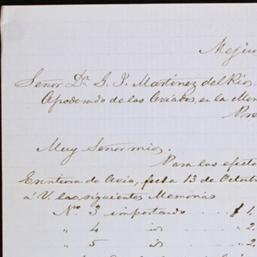 Mejic
Señor Dn. G. P. Martinez del Rio
Apoderado de los Aviados, en la Mon
Pre
Muy Señor mio.
Para los efecto
Escritura de Avio, fecha 13 de Octub
á V. las siguientes Memorias
No. 3 importado .... $ 1,
" 4 " .. " 2,
" 5 " .. " 2,